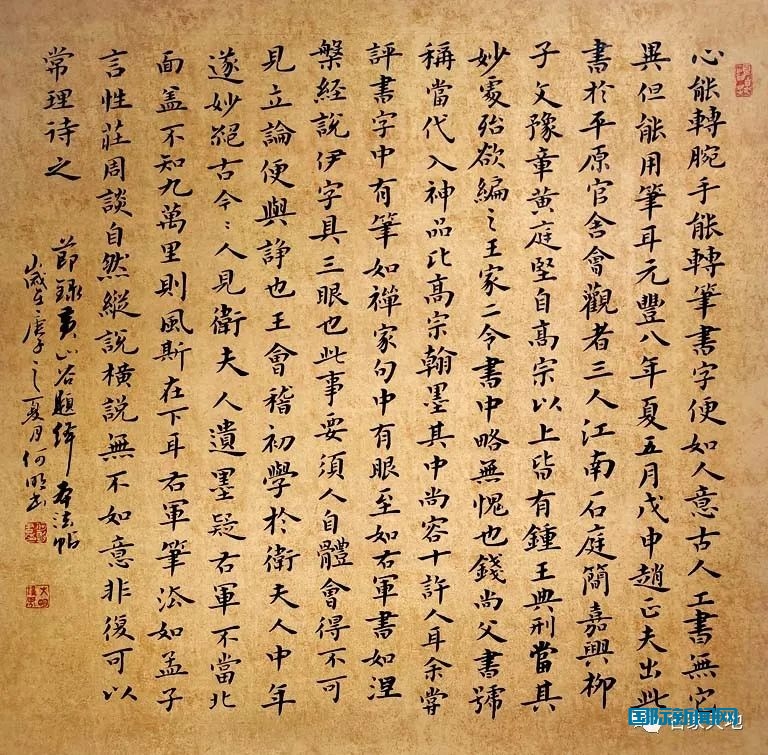 心能轉腕手能轉筆書字便如人意古人工書無它
異但能用筆耳元豐八年夏五月戊申趙正夫出此
書於平原官舍會觀者三人江南石庭簡嘉興柳
子文豫章黃庭堅自高宗以上皆有鍾王典刑當其
妙處殆欲編之王家二令書中略無愧也錢尚父書號
稱當代入神品比高宗翰墨其中尚容十許人耳余嘗
評書字中有筆如禪家句中有眼至如右軍書如涅
槃經說伊字具三眼也此事要須人自體會得不可
見立論便興諍也王會稽初學於衛夫人中年
遂妙絕古今々人見衛夫人遺墨疑右軍不當北
面蓋不知九萬里則風斯在下耳右軍筆法如孟子
言性莊周談自然縱說橫說無不如意非復可以
常理待之
節錄黃山谷題絳本法帖
歲在庚子之夏月何明書
国际新闻网